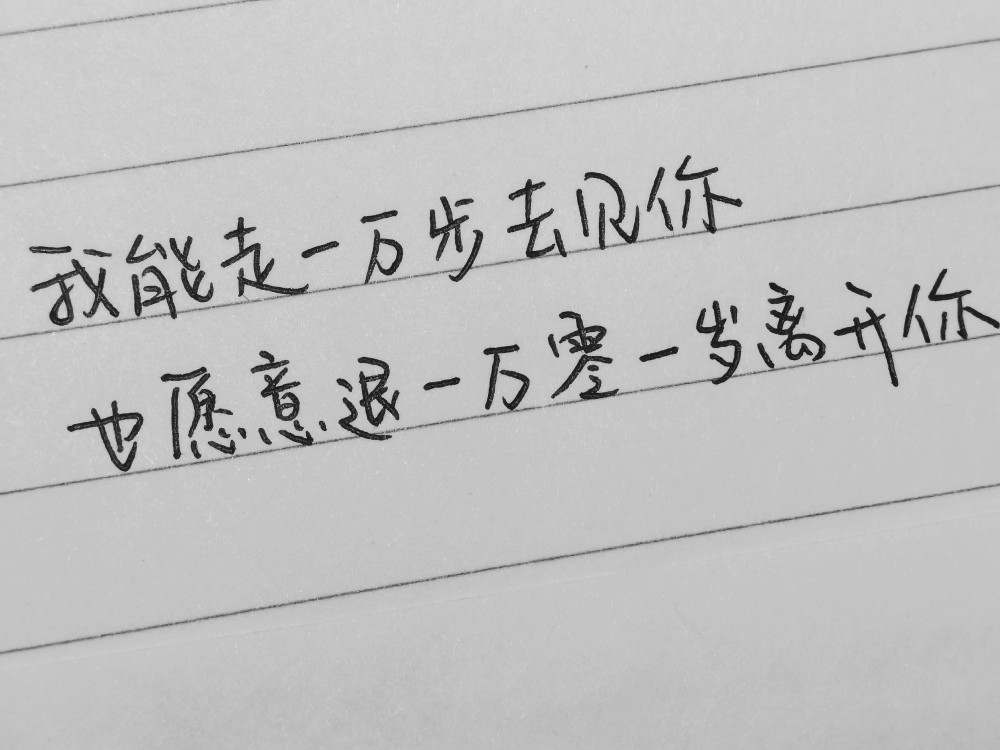 我能走一万步去见你
也愿意退一万零一岁离开你